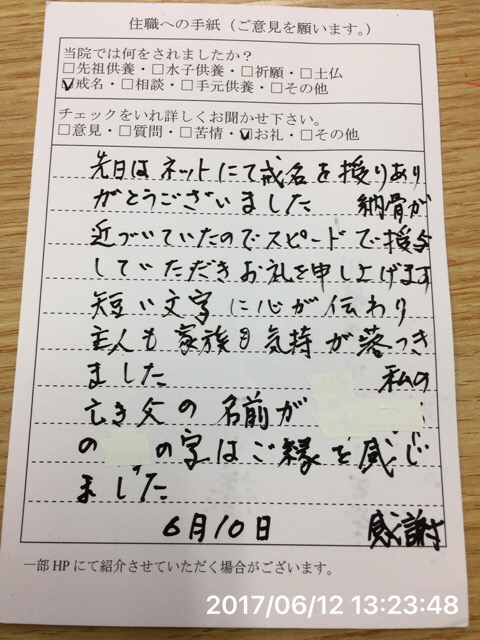 住職への手紙（ご意見を願います。）
当院では何をされましたか？
□先祖供養・□水子供養・□祈願・□土仏
☑戒名・□相談・□手元供養・□その他
チェックをいれ詳しくお聞かせ下さい。
□意見・□質問・□苦情・☑お礼・□その他
先日はネットにて戒名を授りあり
がとうございました　納骨が
近づいていたのでスピードで授与
していただきお礼を申し上げます
短い文字に心が伝わり
主人も家族も気持が落つき
ました　私の
亡き父の名前が
の　の字はご縁を感じ
ました
6月10日　感謝
一部HPにて紹介させていただく場合がございます。
2017/06/12 13:23:48